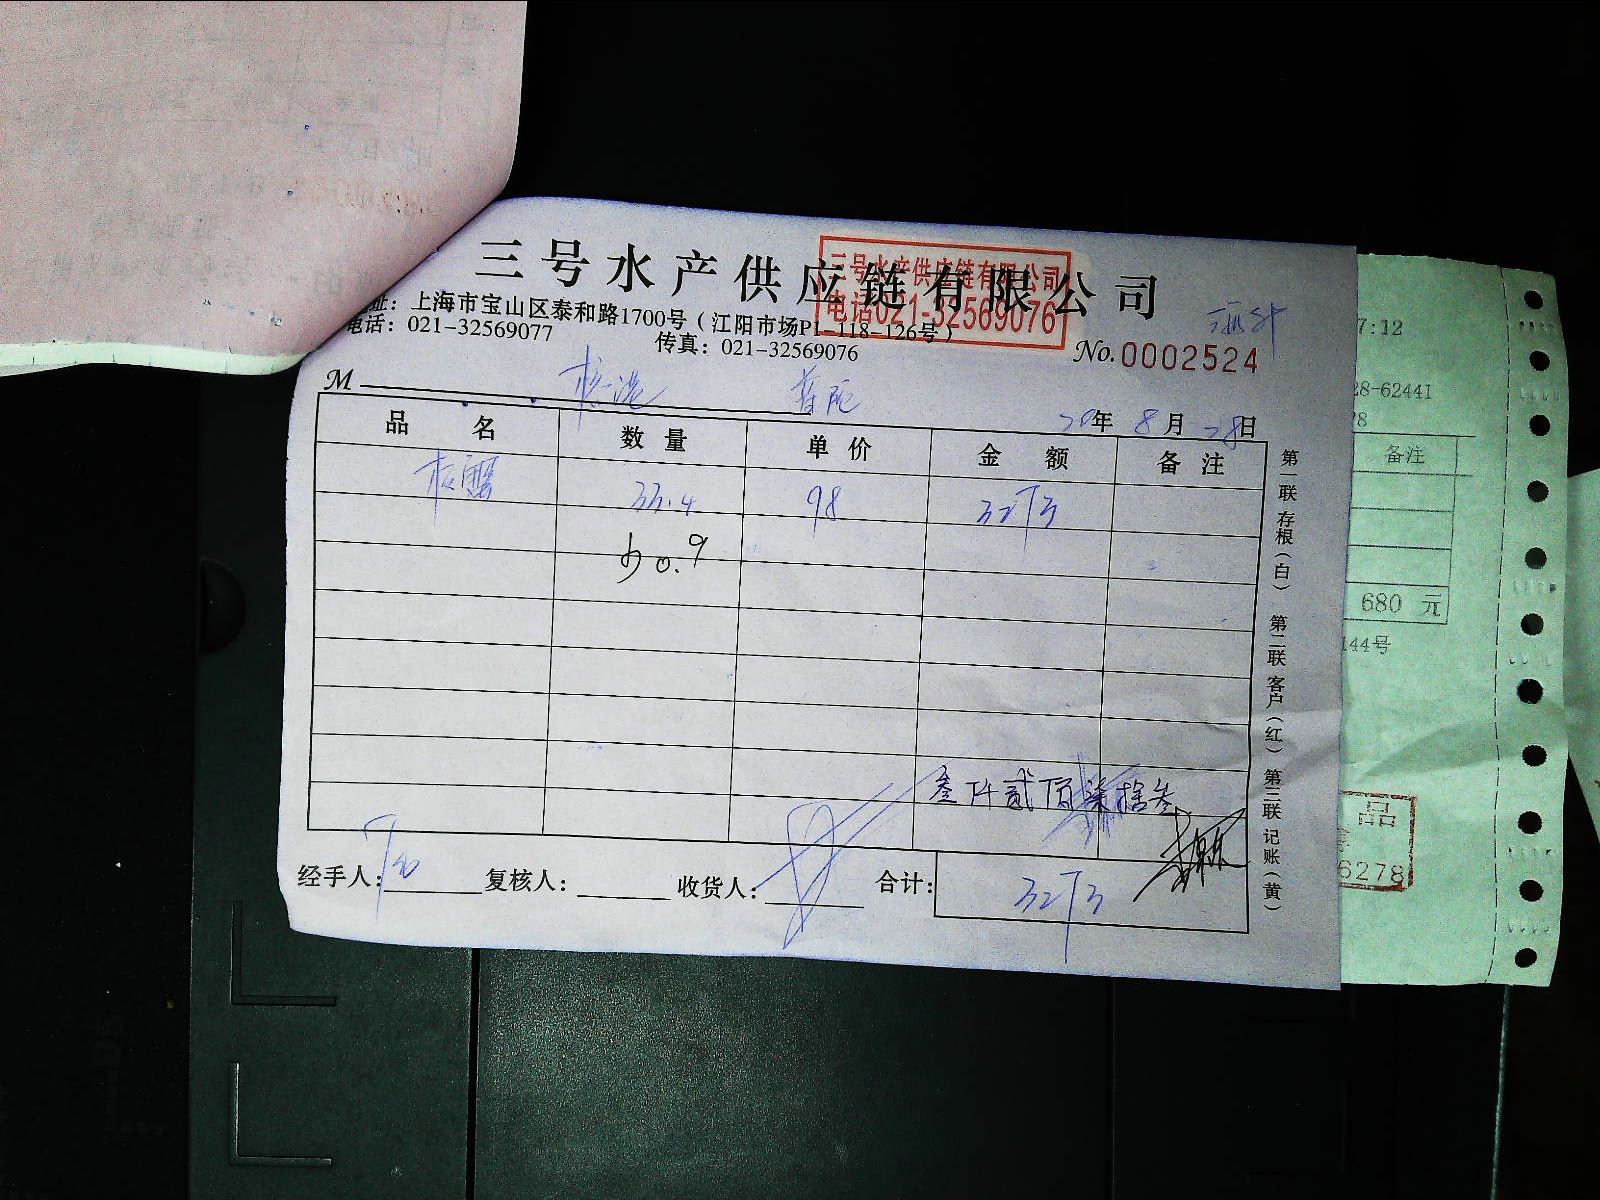 三号水产供应链有限公司
三号水产供应链有限公司
电话021-32569076
地址：上海市宝山区泰和路1700号（江阳市场P1-118-126号）
电话：021-32569077
传真：021-32569076
No.0002524
M
20年8月28日
品名 数量 单价 金额 备注
33.4 98 3273
少0.9
叁仟贰佰柒拾叁
经手人： 复核人： 收货人： 合计：3273
第一联 存根（白） 第二联 客户（红） 第三联 记账（黄）
7:12
28-62441
28
备注
680 元
144号
品
6278